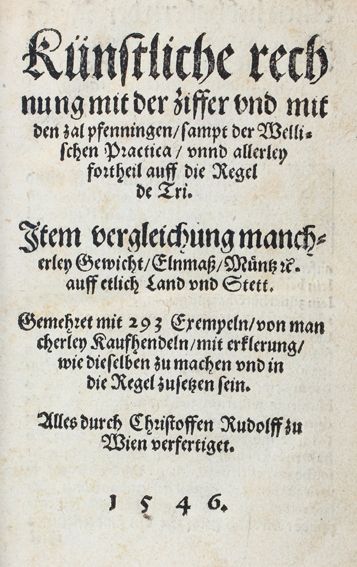 Künſtliche rech
nung mit der ziffer vnd mit
den zal pfenningen/ſampt der Welli-
ſchen Practica/ vnnd allerley
fortheil auff die Regel
de Tri.
Item vergleichung manch-
erley Gewicht/Elnmaß/Müntz ꝛc.
auff etlich Land vnd Stett.
Gemehret mit 293 Exempeln/von man
cherley Kaufhendeln/mit erklerung/
wie dieſelben zu machen vnd in
die Regel zuſetzen ſein.
Alles durch Chriſtoffen Rudolff zu
Wien verfertiget.
1 5 4 6.